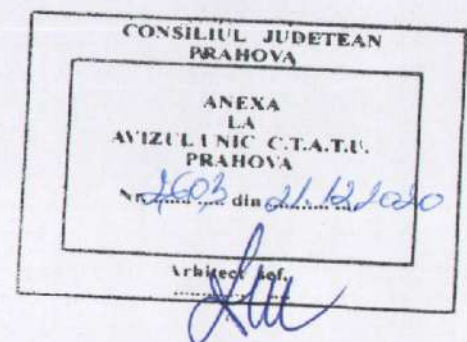 CONSILIUL JUDETEAN
PRAHOVA
ANEXA
LA
AVIZUL UNIC C.T.A.T.U.
PRAHOVA
Nr. 2603 din 21.12.2020
Arhitect sef,